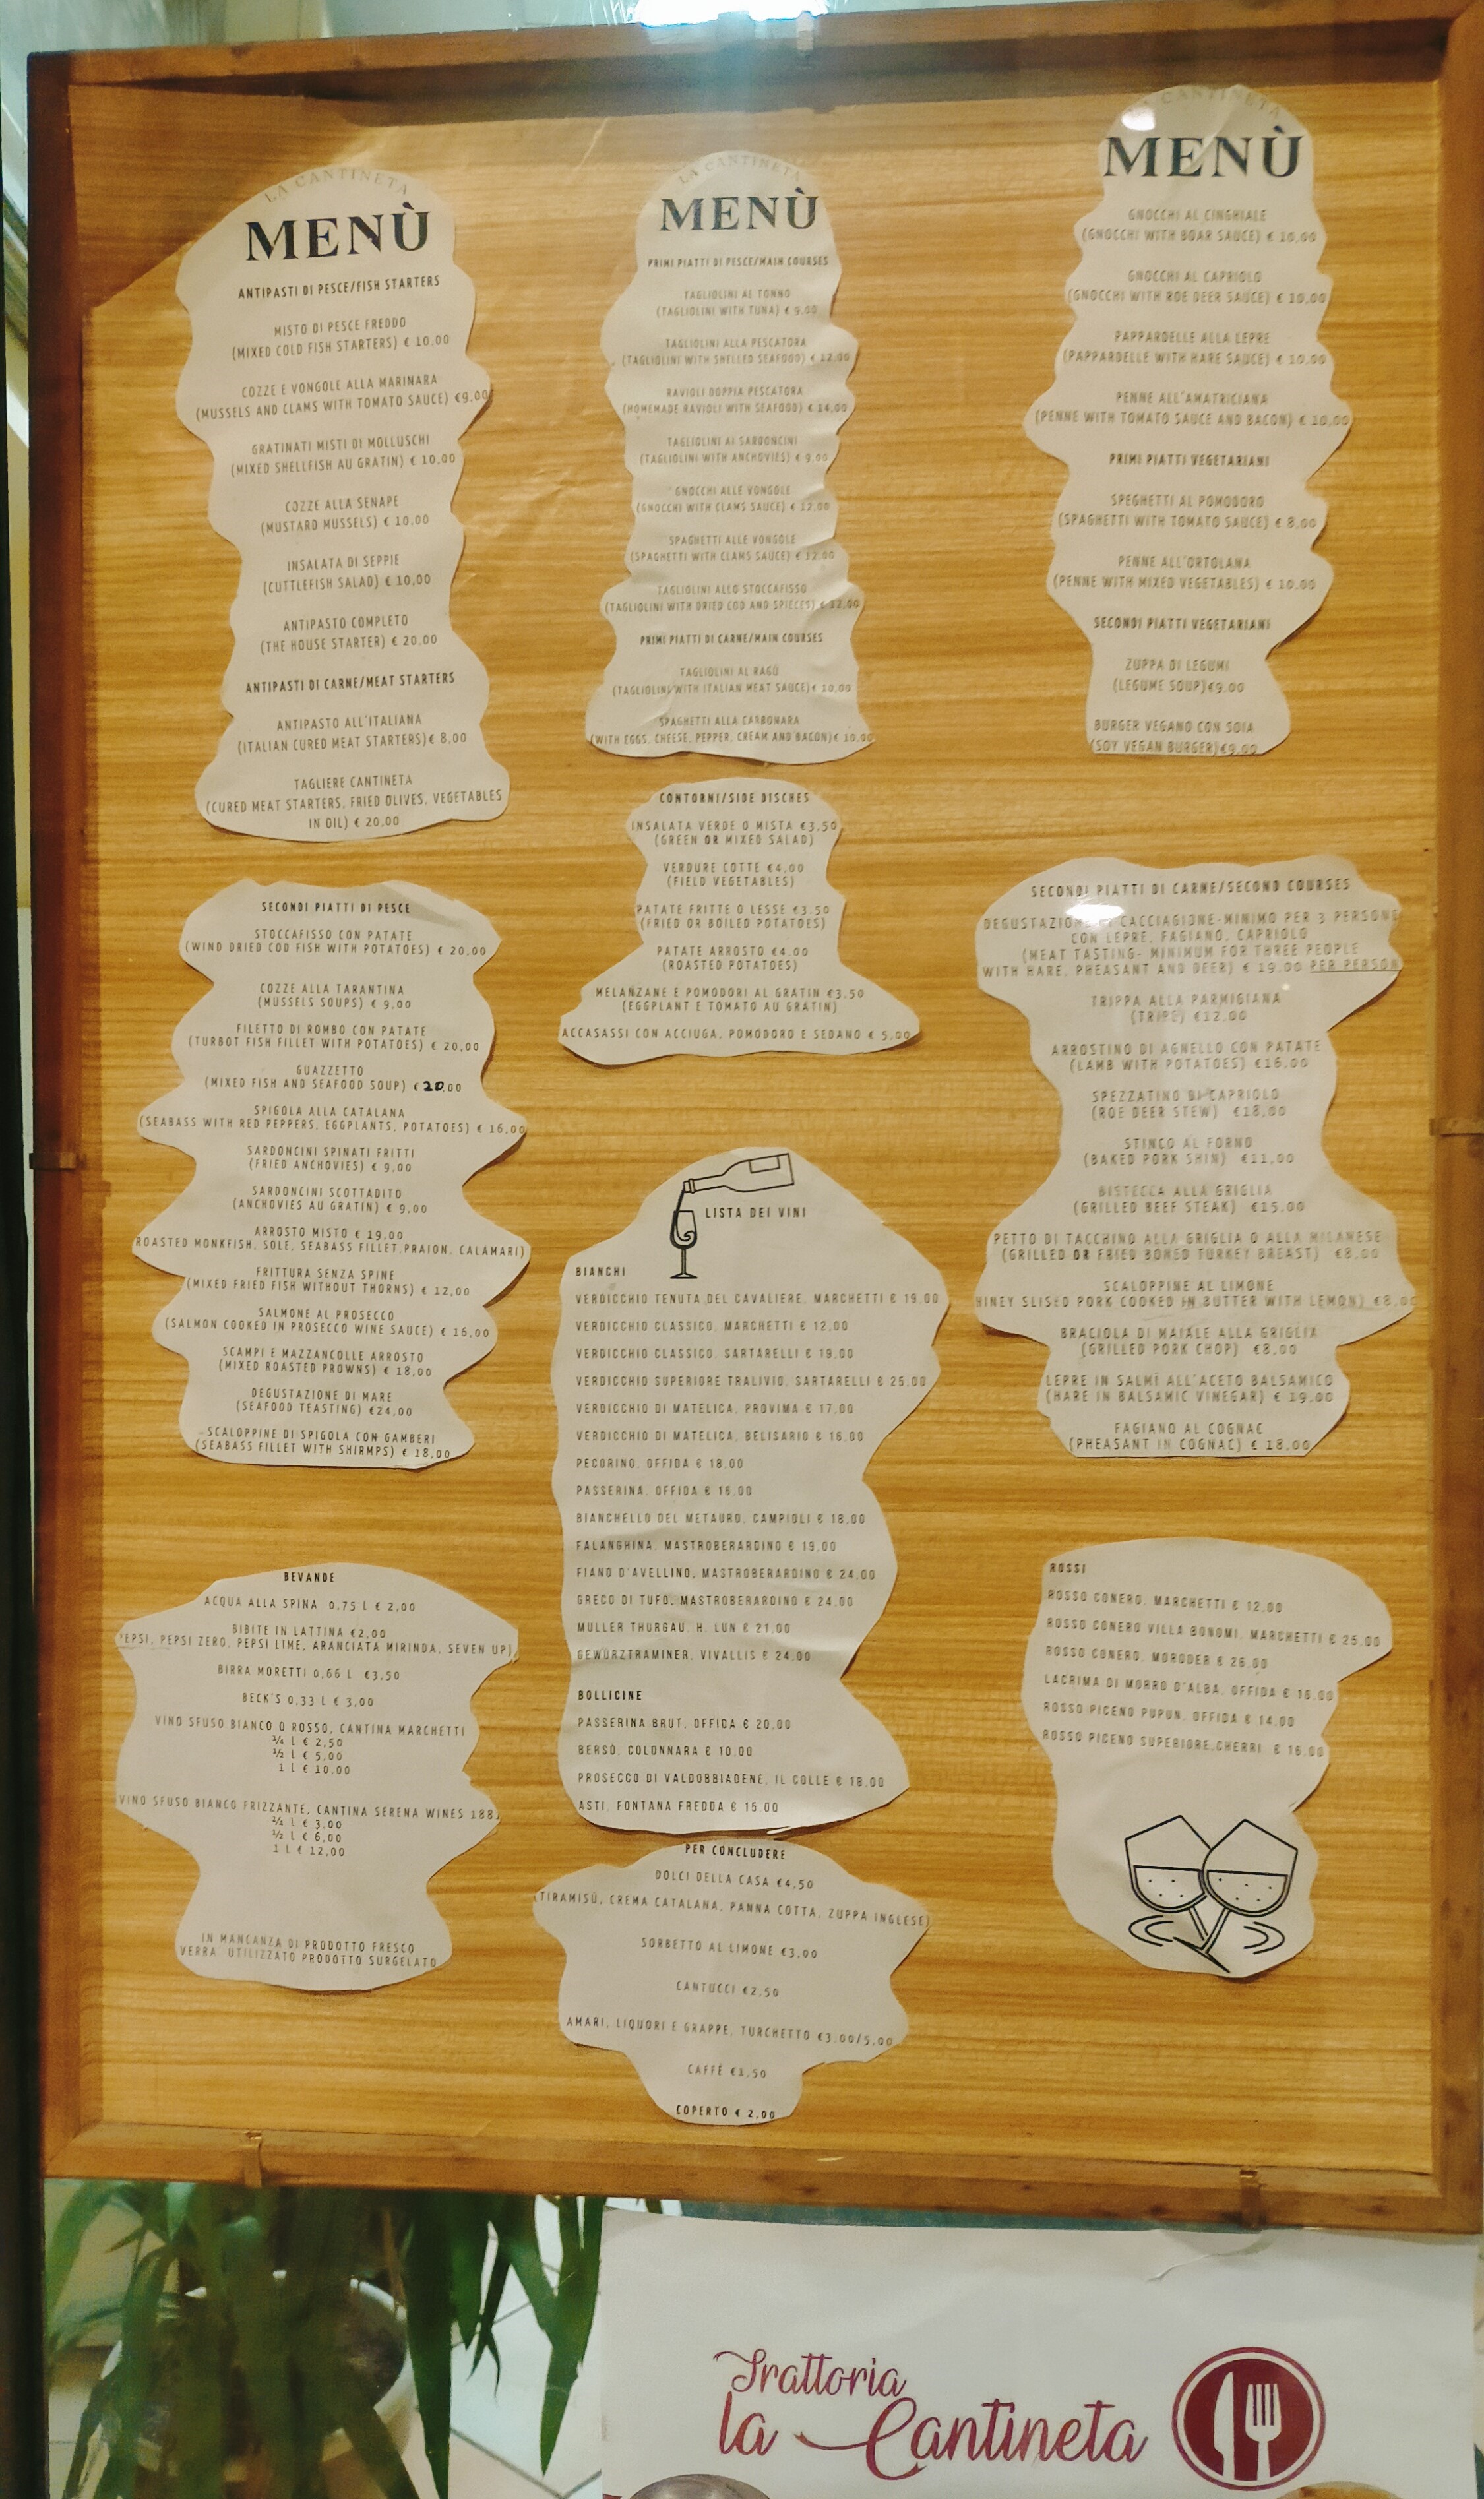 LA CANTINETA
MENÙ
ANTIPASTI DI PESCE/FISH STARTERS
MISTO DI PESCE FREDDO
(MIXED COLD FISH STARTERS) € 10.00
COZZE E VONGOLE ALLA MARINARA
(MUSSELS AND CLAMS WITH TOMATO SAUCE) €9.00
GRATINATI MISTI DI MOLLUSCHI
(MIXED SHELLFISH AU GRATIN) € 10,00
COZZE ALLA SENAPE
(MUSTARD MUSSELS) € 10.00
INSALATA DI SEPPIE
(CUTTLEFISH SALAD) € 10,00
ANTIPASTO COMPLETO
(THE HOUSE STARTER) € 20,00
ANTIPASTI DI CARNE/MEAT STARTERS
ANTIPASTO ALL'ITALIANA
(ITALIAN CURED MEAT STARTERS)€ 8,00
TAGLIERE CANTINETA
(CURED MEAT STARTERS, FRIED OLIVES, VEGETABLES
IN OIL) € 20,00
LA CANTINETA
MENÙ
PRIMI PIATTI DI PESCE/MAIN COURSES
TAGLIOLINI AL TONNO
(TAGLIOLINI WITH TUNA) € 9.00
TAGLIOLINI ALLA PESCATORA
(TAGLIOLINI WITH SHELLED SEAFOOD) € 12.00
RAVIOLI DOPPIA PESCATORA
(HOMEMADE RAVIOLI WITH SEAFOOD) € 14,00
TAGLIOLINI AI SARDONCINI
(TAGLIOLINI WITH ANCHOVIES) € 9.00
GNOCCHI ALLE VONGOLE
(GNOCCHI WITH CLAMS SAUCE) € 12.00
SPAGHETTI ALLE VONGOLE
(SPAGHETTI WITH CLAMS SAUCE) € 12.00
TAGLIOLINI ALLO STOCCAFISSO
(TAGLIOLINI WITH DRIED COD AND SPIECES) € 12,00
PRIMI PIATTI DI CARNE/MAIN COURSES
TAGLIOLINI AL RAGÙ
(TAGLIOLINI WITH ITALIAN MEAT SAUCE)€ 10,00
SPAGHETTI ALLA CARBONARA
(WITH EGGS, CHEESE, PEPPER, CREAM AND BACON)€ 10,00
LA CANTINETA
MENÙ
GNOCCHI AL CINGHIALE
(GNOCCHI WITH BOAR SAUCE) € 10,00
GNOCCHI AL CAPRIOLO
(GNOCCHI WITH ROE DEER SAUCE) € 10,00
PAPPARDELLE ALLA LEPRE
(PAPPARDELLE WITH HARE SAUCE) € 10,00
PENNE ALL'AMATRICIANA
(PENNE WITH TOMATO SAUCE AND BACON) € 10,00
PRIMI PIATTI VEGETARIANI
SPEGHETTI AL POMODORO
(SPAGHETTI WITH TOMATO SAUCE) € 8,00
PENNE ALL'ORTOLANA
(PENNE WITH MIXED VEGETABLES) € 10.00
SECONDI PIATTI VEGETARIANI
ZUPPA DI LEGUMI
(LEGUME SOUP)€9.00
BURGER VEGANO CON SOIA
(SOY VEGAN BURGER)€9,00
SECONDI PIATTI DI PESCE
STOCCAFISSO CON PATATE
(WIND DRIED COD FISH WITH POTATOES) € 20,00
COZZE ALLA TARANTINA
(MUSSELS SOUPS) € 9,00
FILETTO DI ROMBO CON PATATE
(TURBOT FISH FILLET WITH POTATOES) € 20,00
GUAZZETTO
(MIXED FISH AND SEAFOOD SOUP) € 20,00
SPIGOLA ALLA CATALANA
(SEABASS WITH RED PEPPERS, EGGPLANTS, POTATOES) € 16,00
SARDONCINI SPINATI FRITTI
(FRIED ANCHOVIES) € 9,00
SARDONCINI SCOTTADITO
(ANCHOVIES AU GRATIN) € 9.00
ARROSTO MISTO € 19.00
ROASTED MONKFISH, SOLE, SEABASS FILLET,PRAION, CALAMARI)
FRITTURA SENZA SPINE
(MIXED FRIED FISH WITHOUT THORNS) € 12,00
SALMONE AL PROSECCO
(SALMON COOKED IN PROSECCO WINE SAUCE) € 16,00
SCAMPI E MAZZANCOLLE ARROSTO
(MIXED ROASTED PROWNS) € 18,00
DEGUSTAZIONE DI MARE
(SEAFOOD TEASTING) €24,00
SCALOPPINE DI SPIGOLA CON GAMBERI
(SEABASS FILLET WITH SHIRMPS) € 18,00
CONTORNI/SIDE DISCHES
INSALATA VERDE O MISTA €3.50
(GREEN OR MIXED SALAD)
VERDURE COTTE €4,00
(FIELD VEGETABLES)
PATATE FRITTE O LESSE €3.50
(FRIED OR BOILED POTATOES)
PATATE ARROSTO €4.00
(ROASTED POTATOES)
MELANZANE E POMODORI AL GRATIN €3.50
(EGGPLANT E TOMATO AU GRATIN)
ACCASASSI CON ACCIUGA, POMODORO E SEDANO € 5,00
SECONDI PIATTI DI CARNE/SECOND COURSES
DEGUSTAZIONE DI CACCIAGIONE-MINIMO PER 3 PERSONE
CON LEPRE, FAGIANO, CAPRIOLO
(MEAT TASTING- MINIMUM FOR THREE PEOPLE
WITH HARE, PHEASANT AND DEER) € 19.00 PER PERSON
TRIPPA ALLA PARMIGIANA
(TRIPE) €12.00
ARROSTINO DI AGNELLO CON PATATE
(LAMB WITH POTATOES) €16.00
SPEZZATINO DI CAPRIOLO
(ROE DEER STEW) €18,00
STINCO AL FORNO
(BAKED PORK SHIN) €11,00
BISTECCA ALLA GRIGLIA
(GRILLED BEEF STEAK) €15.00
PETTO DI TACCHINO ALLA GRIGLIA O ALLA MILANESE
(GRILLED OR FRIED BONED TURKEY BREAST) €8.00
SCALOPPINE AL LIMONE
HINEY SLISED PORK COOKED IN BUTTER WITH LEMON) €8.00
BRACIOLA DI MAIALE ALLA GRIGLIA
(GRILLED PORK CHOP) €8,00
LEPRE IN SALMÌ ALL'ACETO BALSAMICO
(HARE IN BALSAMIC VINEGAR) € 19.00
FAGIANO AL COGNAC
(PHEASANT IN COGNAC) € 18,00
LISTA DEI VINI
BIANCHI
VERDICCHIO TENUTA DEL CAVALIERE, MARCHETTI € 19.00
VERDICCHIO CLASSICO, MARCHETTI € 12.00
VERDICCHIO CLASSICO, SARTARELLI € 19.00
VERDICCHIO SUPERIORE TRALIVIO, SARTARELLI € 25.00
VERDICCHIO DI MATELICA, PROVIMA € 17.00
VERDICCHIO DI MATELICA, BELISARIO € 16.00
PECORINO, OFFIDA € 18.00
PASSERINA, OFFIDA € 16.00
BIANCHELLO DEL METAURO, CAMPIOLI € 18.00
FALANGHINA, MASTROBERARDINO € 19,00
FIANO D'AVELLINO, MASTROBERARDINO € 24.00
GRECO DI TUFO, MASTROBERARDINO € 24.00
MULLER THURGAU, H. LUN € 21,00
GEWÜRZTRAMINER, VIVALLIS € 24.00
BOLLICINE
PASSERINA BRUT, OFFIDA € 20,00
BERSO, COLONNARA € 10.00
PROSECCO DI VALDOBBIADENE, IL COLLE € 18.00
ASTI, FONTANA FREDDA € 15.00
ROSSI
ROSSO CONERO, MARCHETTI € 12,00
ROSSO CONERO VILLA BONOMI, MARCHETTI € 25.00
ROSSO CONERO, MORODER € 26.00
LACRIMA DI MORRO D'ALBA, OFFIDA € 16.00
ROSSO PICENO PUPUN, OFFIDA € 14.00
ROSSO PICENO SUPERIORE,CHERRI € 16.00
BEVANDE
ACQUA ALLA SPINA 0,75 L € 2,00
BIBITE IN LATTINA €2,00
PEPSI, PEPSI ZERO, PEPSI LIME, ARANCIATA MIRINDA, SEVEN UP)
BIRRA MORETTI 0,66 L €3,50
BECK'S 0,33 L € 3,00
VINO SFUSO BIANCO O ROSSO, CANTINA MARCHETTI
¼ L € 2,50
½ L € 5,00
1 L € 10,00
VINO SFUSO BIANCO FRIZZANTE, CANTINA SERENA WINES 1881
¼ L € 3,00
½ L € 6,00
1 L € 12,00
IN MANCANZA DI PRODOTTO FRESCO
VERRA' UTILIZZATO PRODOTTO SURGELATO
PER CONCLUDERE
DOLCI DELLA CASA €4,50
(TIRAMISÙ, CREMA CATALANA, PANNA COTTA, ZUPPA INGLESE)
SORBETTO AL LIMONE €3,00
CANTUCCI €2,50
AMARI, LIQUORI E GRAPPE, TURCHETTO €3,00/5,00
CAFFÈ €1,50
COPERTO € 2,00
Trattoria
la Cantineta